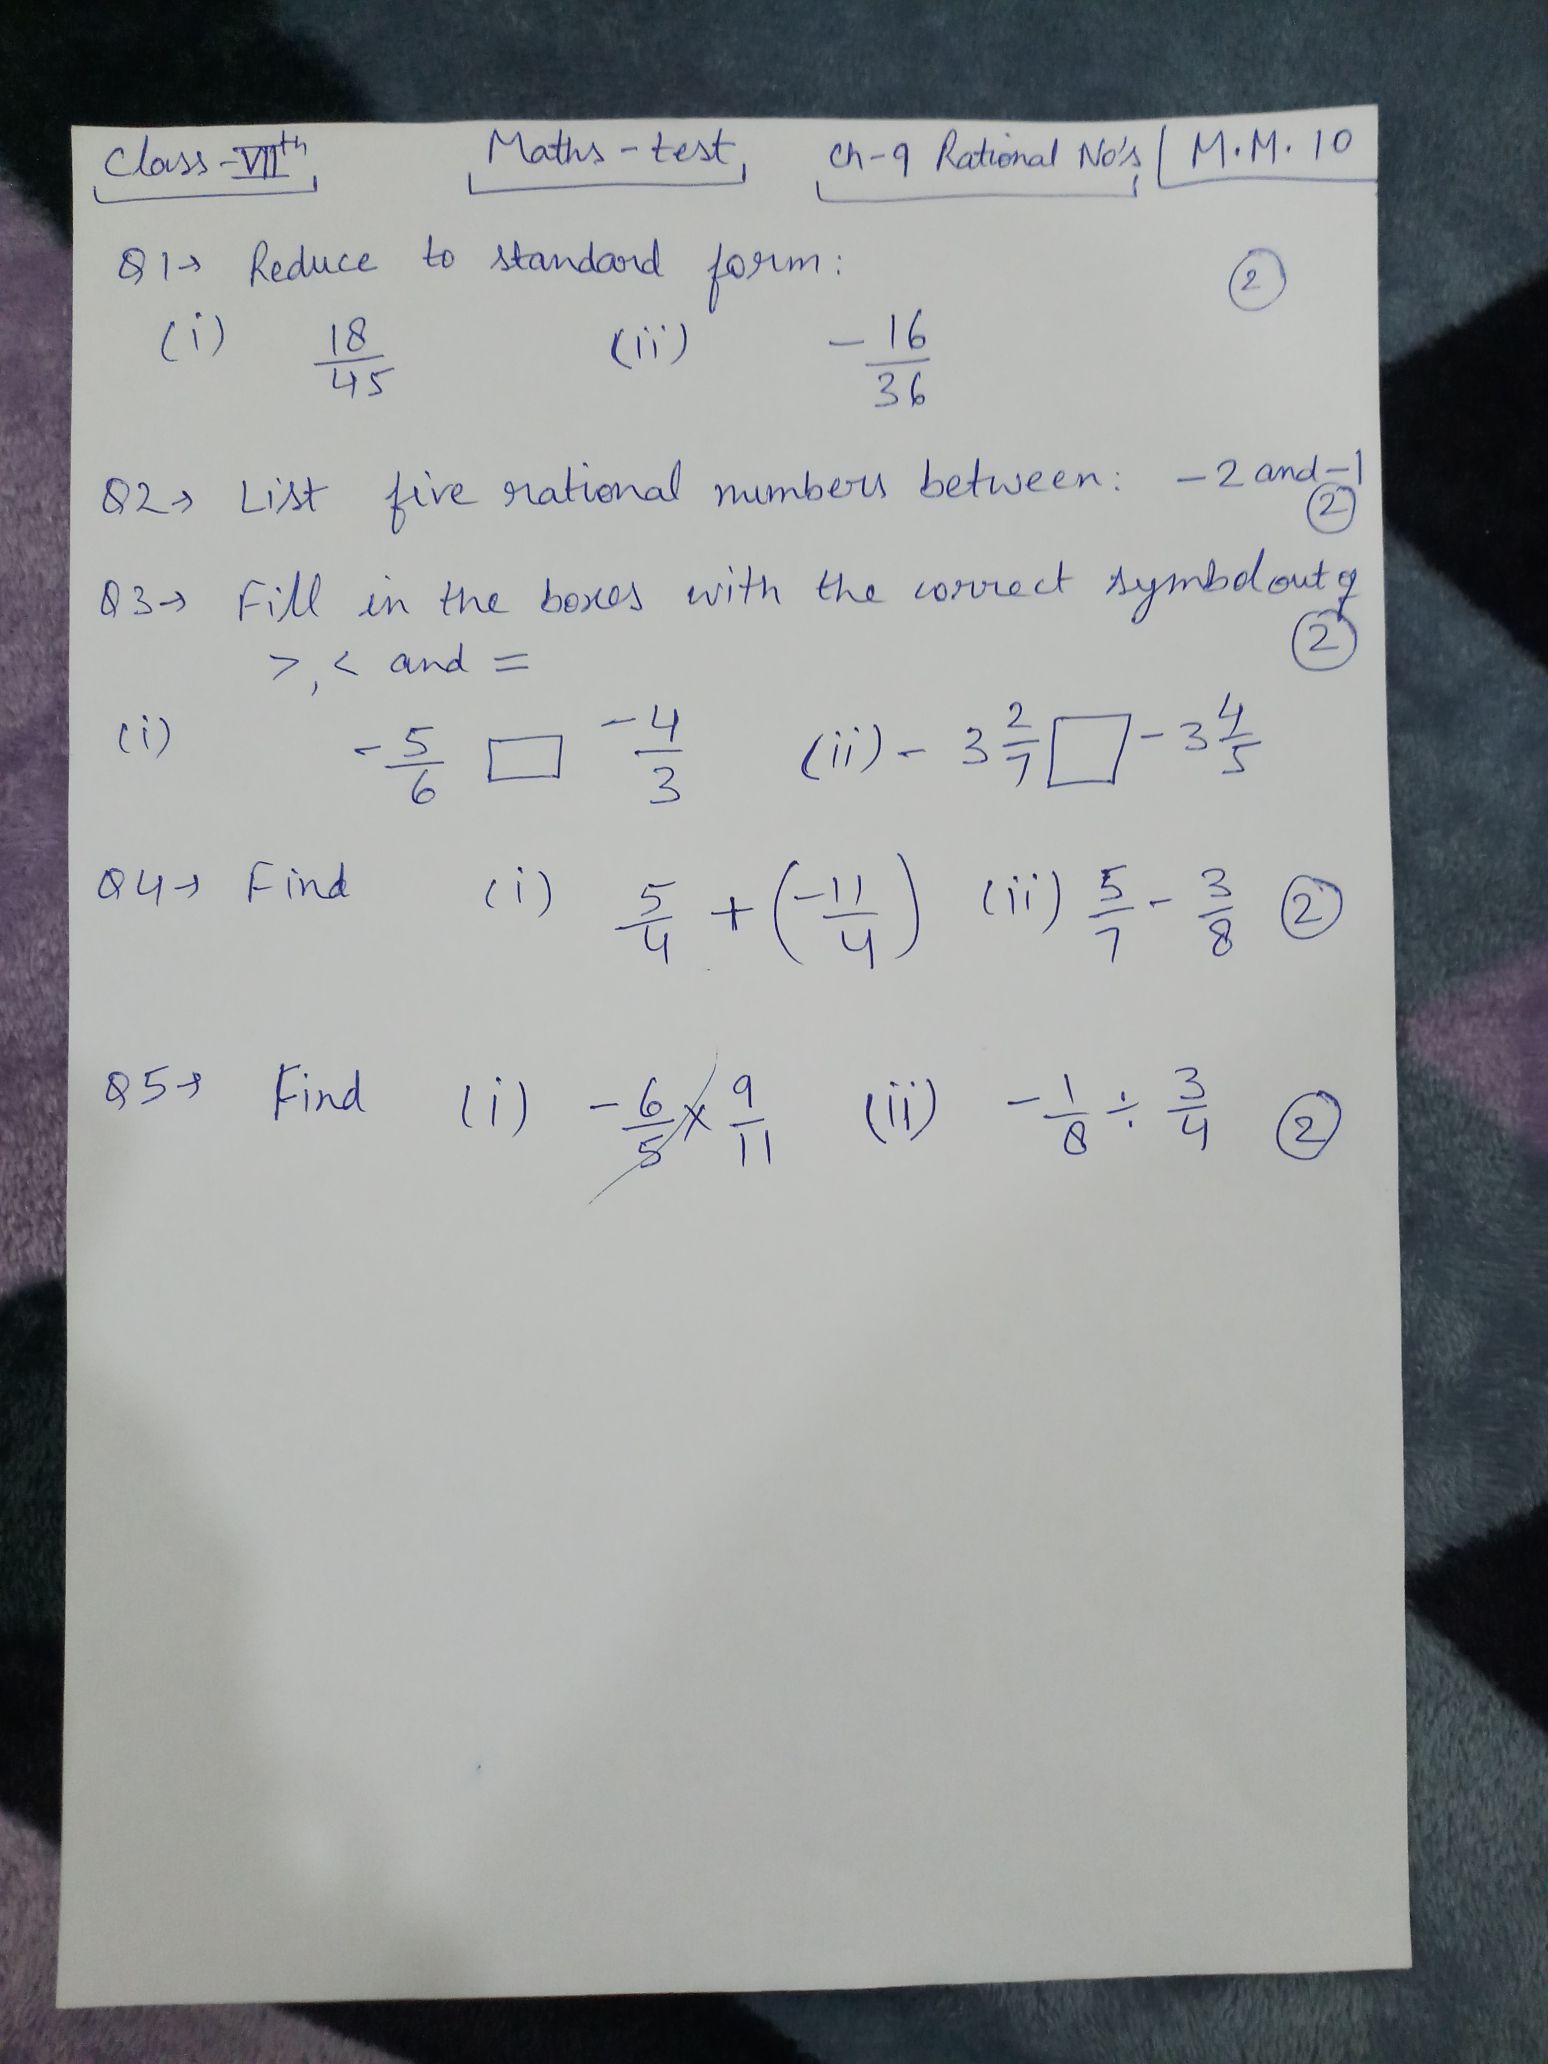 Class-VIIth Maths-test, Ch-9 Rational No's M.M. 10
Q1→ Reduce to standard form: (2)
(i) 18/45 (ii) -16/36
Q2→ List five rational numbers between: -2 and -1 (2)
Q3→ Fill in the boxes with the correct symbol out of (2)
>, < and =
(i) -5/6 □ -4/3 (ii) -3 2/7 □ -3 4/5
Q4→ Find (i) 5/4 + (-11/4) (ii) 5/7 - 3/8 (2)
Q5→ Find (i) -6/5 × 9/11 (ii) -1/8 ÷ 3/4 (2)